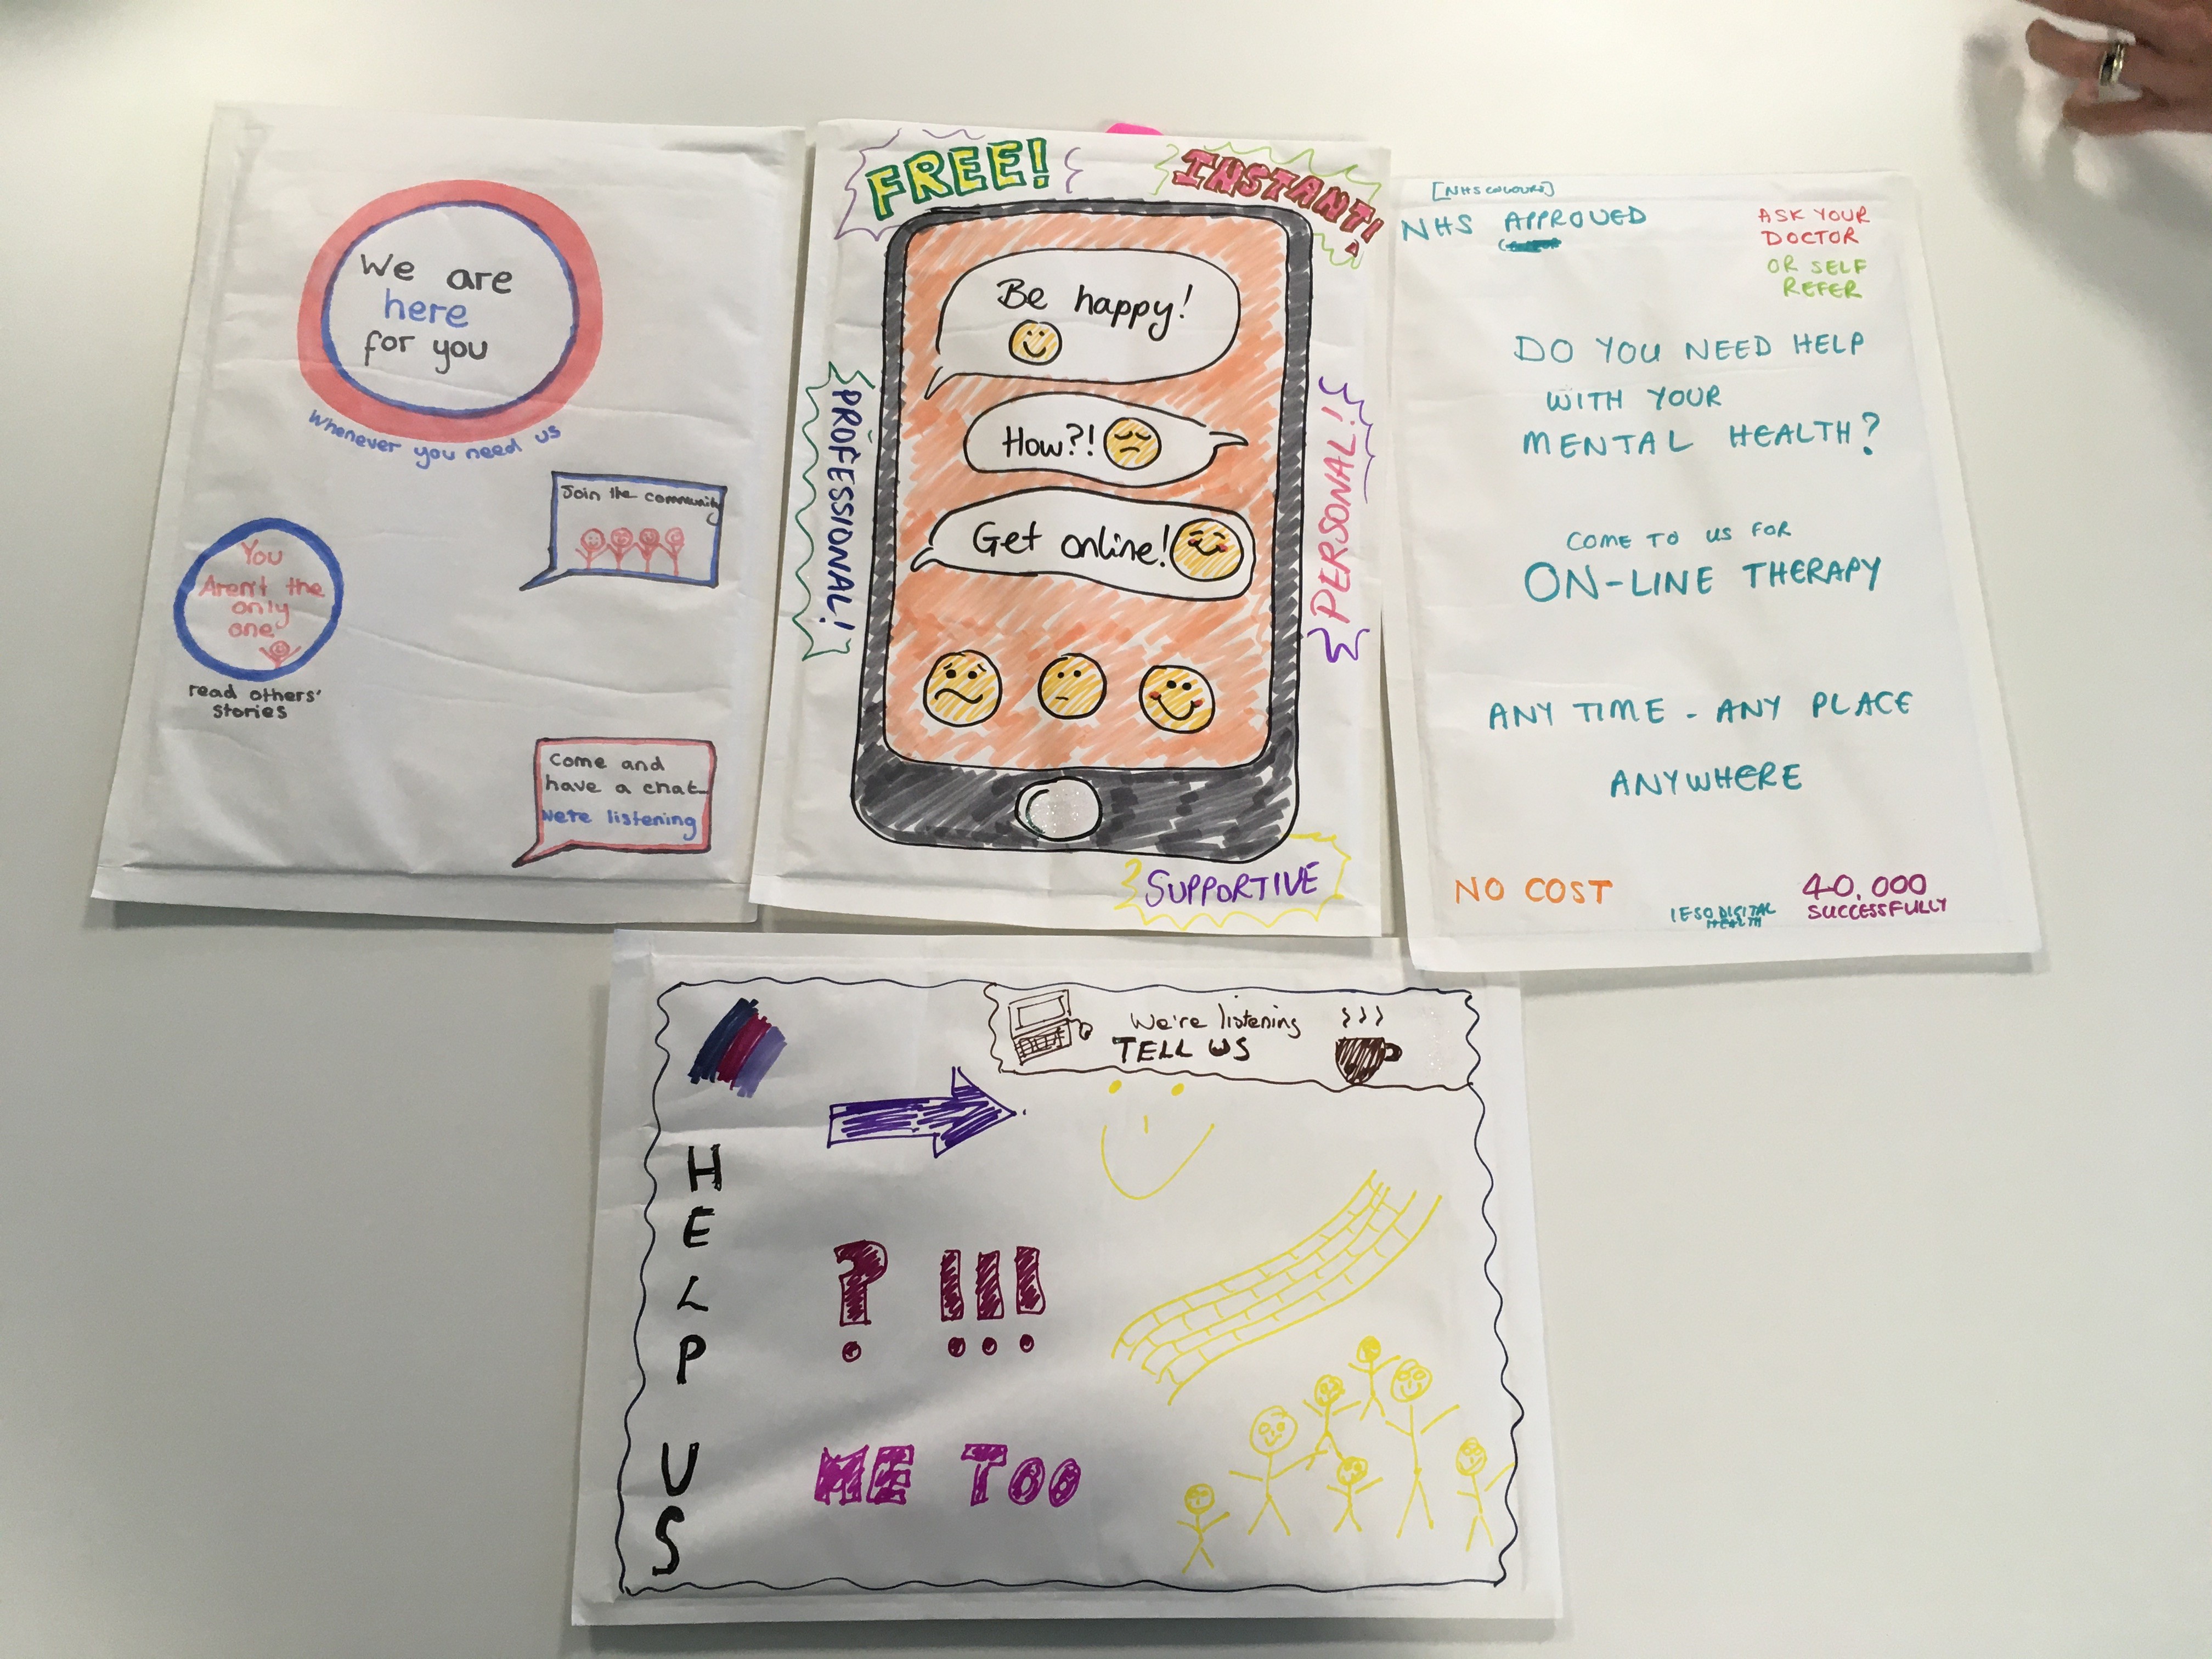 We are
here
for you
Whenever you need us
Join the community
You
Aren't the
only
one
read others'
stories
Come and
have a chat
We're listening
FREE!
INSTANT!
Be happy!
How?!
Get online!
PROFESSIONAL!
PERSONAL!
SUPPORTIVE
[NHS COLOURS]
NHS APPROVED
ASK YOUR
DOCTOR
OR SELF
REFER
DO YOU NEED HELP
WITH YOUR
MENTAL HEALTH?
COME TO US FOR
ON-LINE THERAPY
ANY TIME - ANY PLACE
ANYWHERE
NO COST
IESO DIGITAL
HEALTH
40,000
SUCCESSFULLY
We're listening
TELL US
HELP US
? !!!
ME TOO